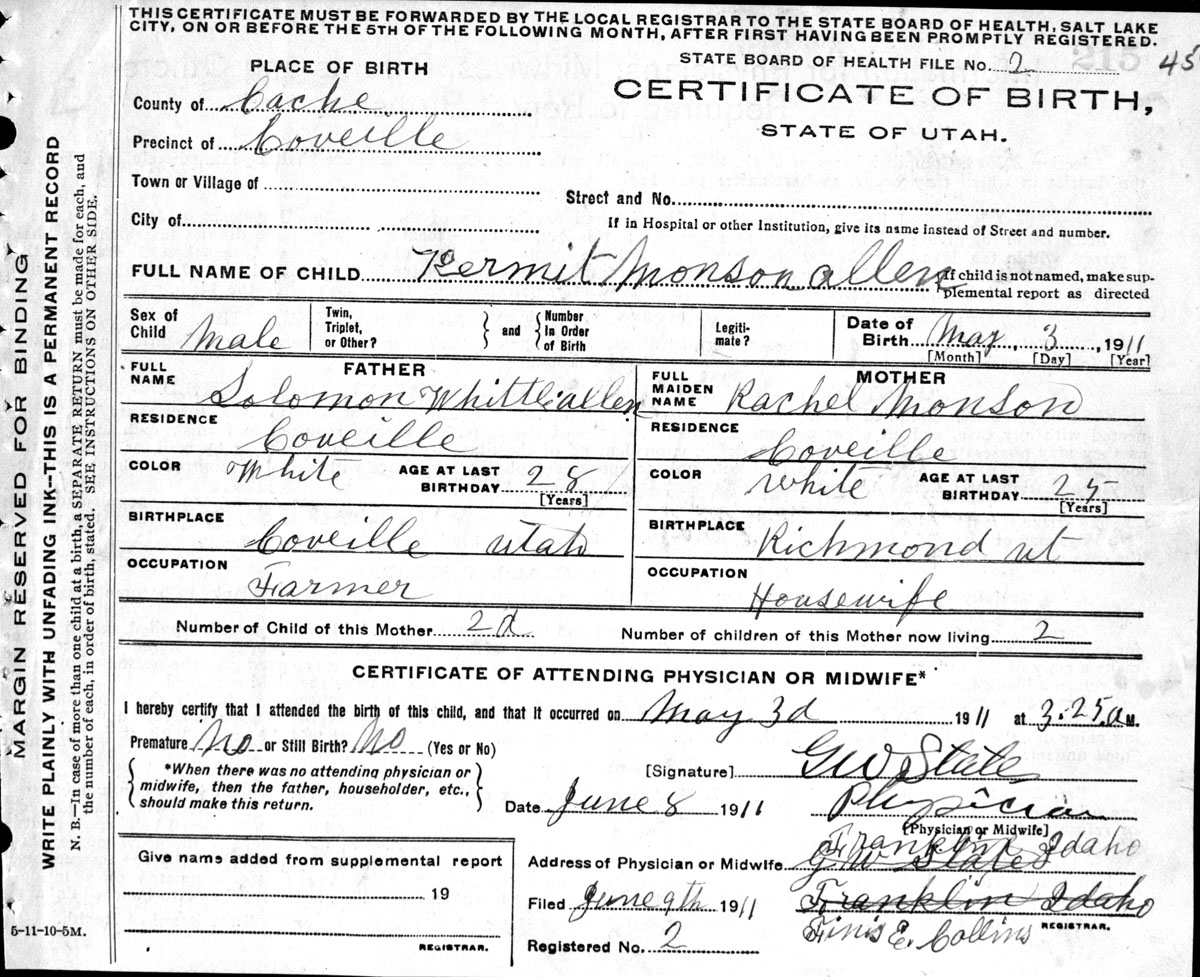 THIS CERTIFICATE MUST BE FORWARDED BY THE LOCAL REGISTRAR TO THE STATE BOARD OF HEALTH, SALT LAKE
CITY, ON OR BEFORE THE 5TH OF THE FOLLOWING MONTH, AFTER FIRST HAVING BEEN PROMPTLY REGISTERED.
MARGIN RESERVED FOR BINDING
WRITE PLAINLY WITH UNFADING INK—THIS IS A PERMANENT RECORD
N. B.—In case of more than one child at a birth, a SEPARATE RETURN must be made for each, and
the number of each, in order of birth, stated. SEE INSTRUCTIONS ON OTHER SIDE.
PLACE OF BIRTH
STATE BOARD OF HEALTH FILE No. 2 45
County of Cache
CERTIFICATE OF BIRTH,
Precinct of Coveille
STATE OF UTAH.
Town or Village of
Street and No.
City of
If in Hospital or other Institution, give its name instead of Street and number.
FULL NAME OF CHILD Kermit Monson Allen
If child is not named, make sup-
plemental report as directed
Sex of Child Male
Twin, Triplet, or Other?
and
Number In Order of Birth
Legiti-mate?
Date of Birth May, 3, 1911
[Month] [Day] [Year]
FATHER
MOTHER
FULL NAME Solomon Whittle Allen
FULL MAIDEN NAME Rachel Monson
RESIDENCE Coveille
RESIDENCE Coveille
COLOR White AGE AT LAST BIRTHDAY 28 [Years]
COLOR White AGE AT LAST BIRTHDAY 25 [Years]
BIRTHPLACE Coveille Utah
BIRTHPLACE Richmond Ut
OCCUPATION Farmer
OCCUPATION Housewife
Number of Child of this Mother 2d
Number of children of this Mother now living 2
CERTIFICATE OF ATTENDING PHYSICIAN OR MIDWIFE*
I hereby certify that I attended the birth of this child, and that it occurred on May 3d 1911 at 3.25 a M.
Premature No or Still Birth? No (Yes or No)
*When there was no attending physician or
midwife, then the father, householder, etc.,
should make this return.
[Signature] G W State
Date June 8 1911 Physician
[Physician or Midwife]
Franklin Idaho
Address of Physician or Midwife G. W. State
Give name added from supplemental report
19
REGISTRAR.
Filed June 9th 1911 Franklin Idaho
Finis E. Collins REGISTRAR.
Registered No. 2
5-11-10-5M.